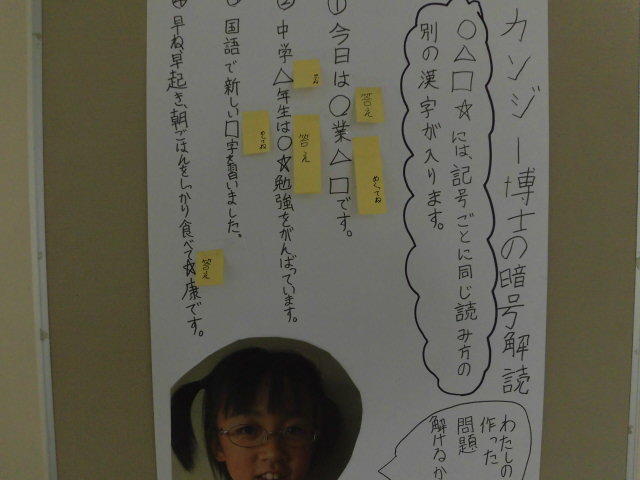 カンジー博士の暗号解読
○△□☆には、記号ごとに同じ読み方の
別の漢字が入ります。
①今日は○業△□です。
答え
めくってね
②中学△年生は○☆勉強をがんばっています。
答え
③国語で新しい□字を習いました。
めくってね
④早ね、早起き、朝ごはんをしっかり食べて☆康です。
答え
わたしの
作った
問題
解けるか